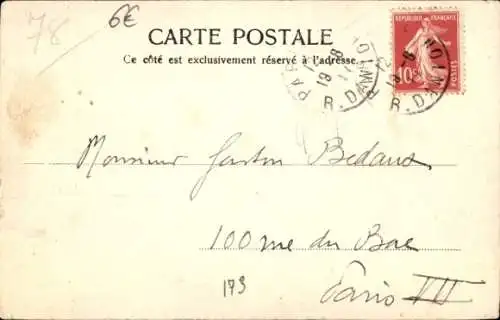 78
6€
CARTE POSTALE
Ce côté est exclusivement réservé à l'adresse.
RÉPUBLIQUE FRANÇAISE
10c
POSTES
R. DAMIOU
Monsieur Gaston Bedaux
100 rue du Bac
173
Paris VII